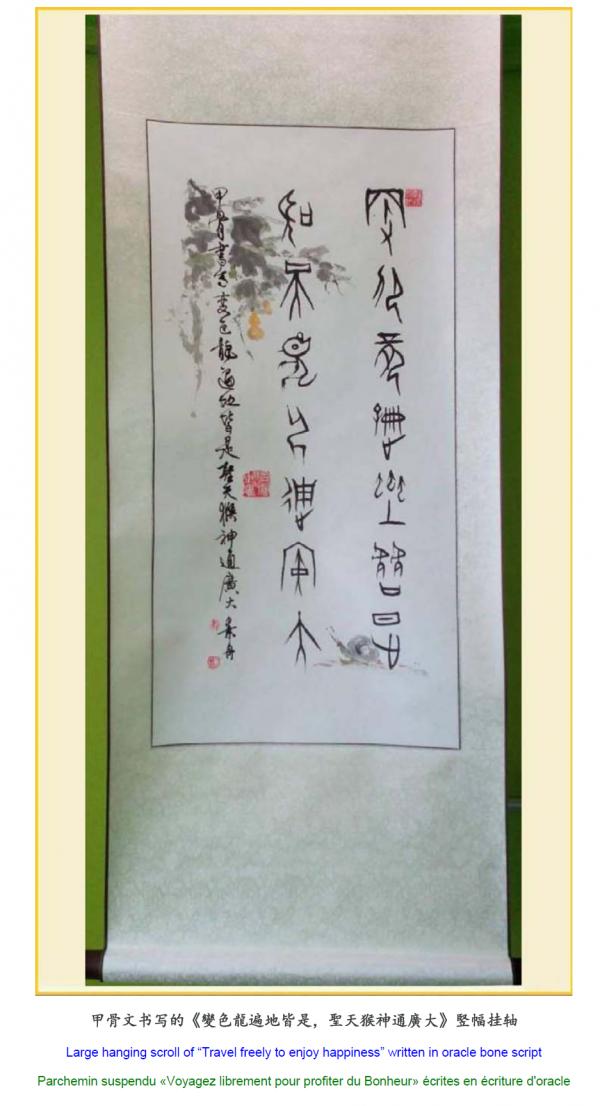 變色龍遍地皆是
聖天猴神通廣大
甲骨書寫變色龍遍地皆是聖天猴神通廣大
甲骨文书写的《變色龍遍地皆是，聖天猴神通廣大》竖幅挂轴
Large hanging scroll of “Travel freely to enjoy happiness” written in oracle bone script
Parchemin suspendu «Voyagez librement pour profiter du Bonheur» écrites en écriture d'oracle